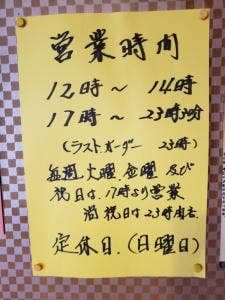 営業時間
12時～14時
17時～23時30分
(ラストオーダー 23時)
毎週火曜.金曜 及び
祝日は.17時より営業
祝日は23時
定休日.(日曜日)